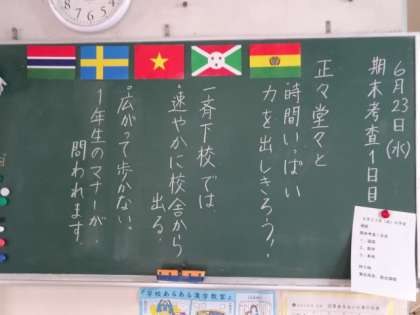 6月23日(水)
期末考査1日目
正々堂々と
時間いっぱい
力を出しきろう!!
一斉下校では
・速やかに校舎から
出る。
・広がって歩かない。
1年生のマナーが
問われます。
『学校あるある漢字教室』